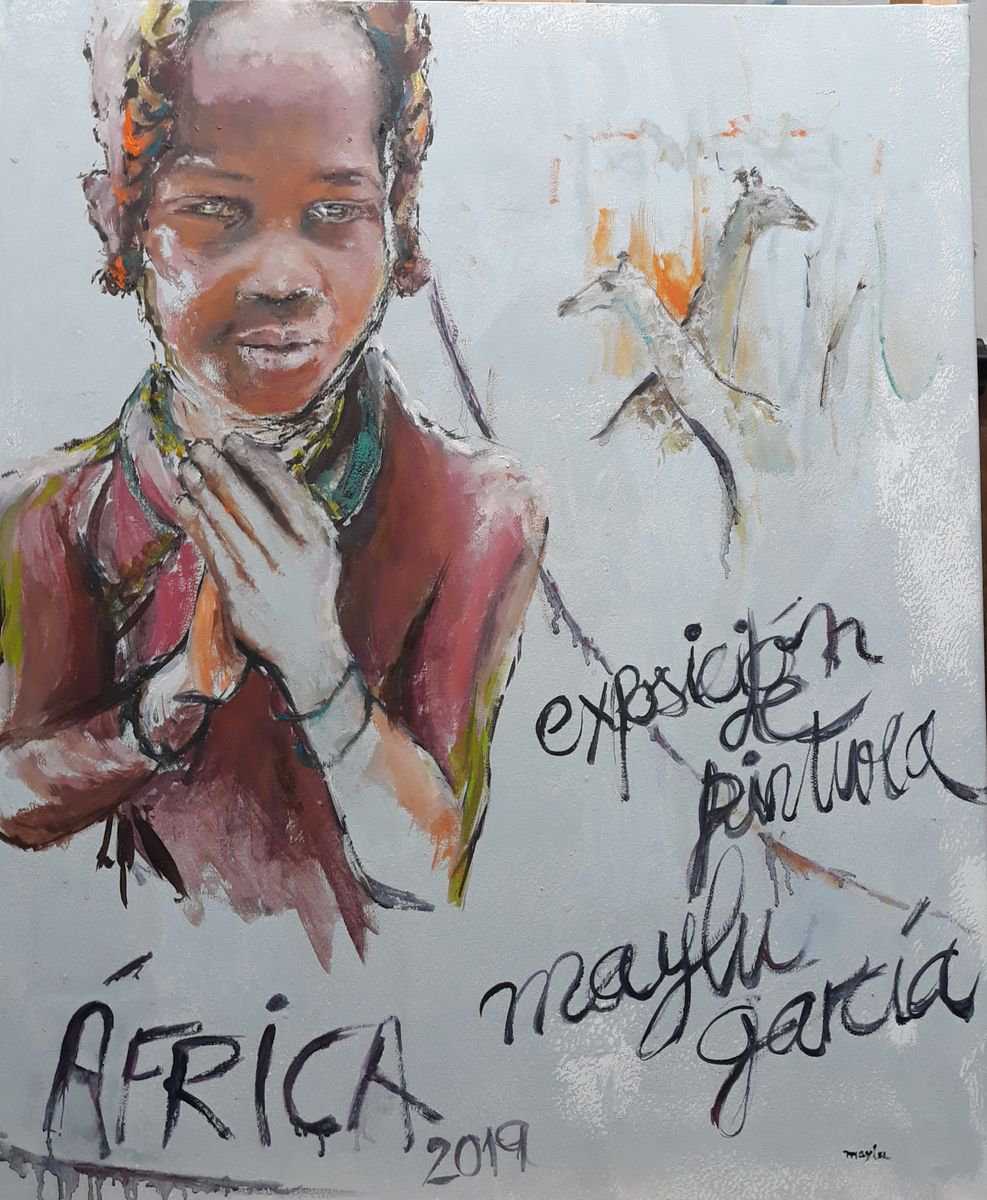 exposición
de
pintura
maylu
garcía
ÁFRICA
2019
maylu